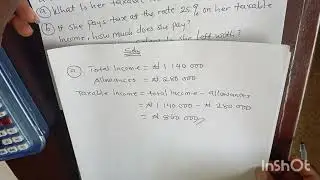 (a) What is her taxable
(b) If she pays tax at the rate 25% on her taxable
income, how much does she pay?
she left with?
Soln
(a) Total income = ₦1 140 000
Allowances = ₦280 000
Taxable income = total income - allowances
= ₦1 140 000 - ₦280 000
= ₦860 000
InShOt